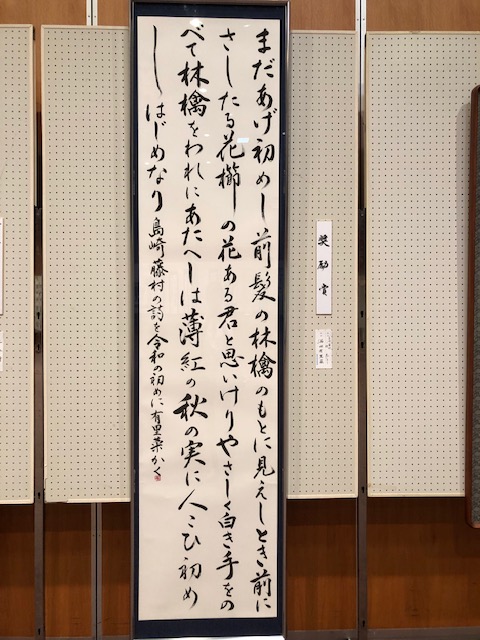 まだあげ初めし前髪の林檎のもとに見えしとき前に
さしたる花櫛の花ある君と思いけりやさしく白き手をの
べて林檎をわれにあたへしは薄紅の秋の実に人こひ初め
しはじめなり 島崎藤村の詩を令和の初めに 有里菜かく
奨励賞